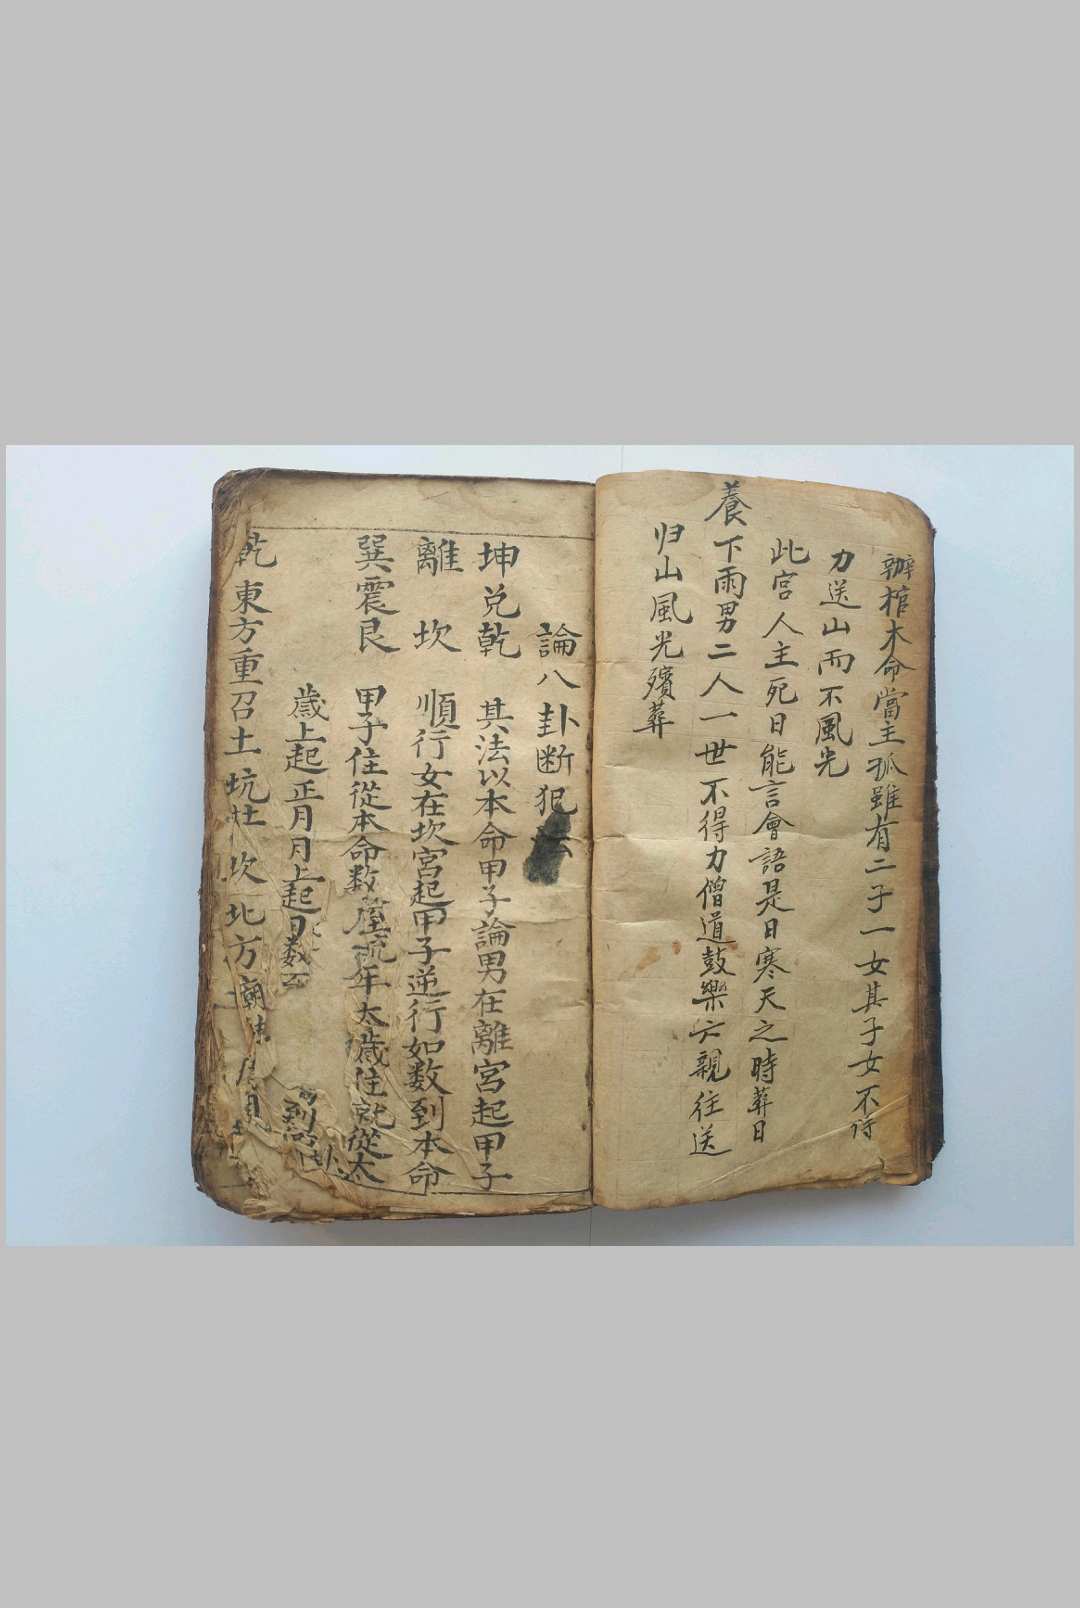 辦棺木命當主孤雖有二子一女其子女不得
力送山而不風光
此宮人主死日能言會語是日寒天之時葬日
養 下雨男二人一世不得力僧道鼓樂六親往送
归山風光殯葬
論八卦断犯
坤兑乾 其法以本命甲子論男在離宮起甲子
離 坎 順行女在坎宮起甲子逆行如数到本命
巽震艮 甲子住從本命数流年太歲住就從太
歲上起正月月上起日数至 到
乾東方重召土坑 坎北方廟